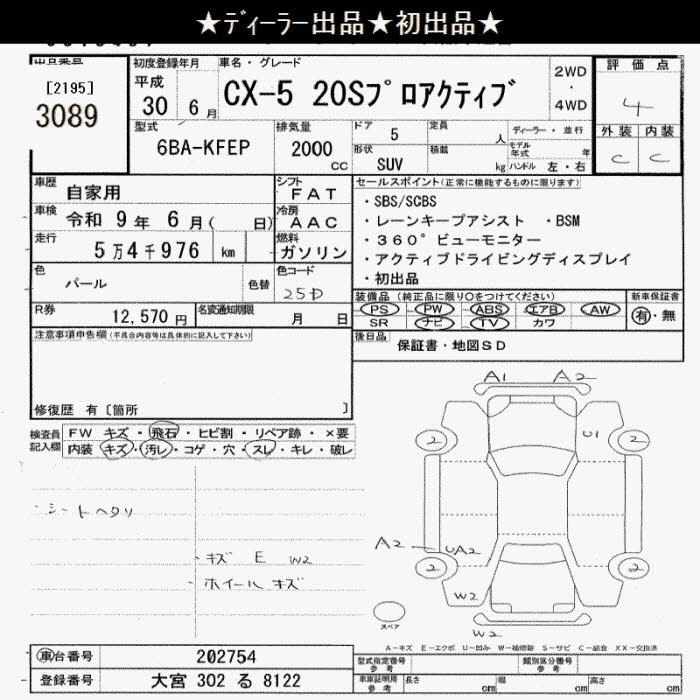 ★ディーラー出品★初出品★
初度登録年月
車名・グレード
評価点
[2195]
3089
平成
30 6月
CX-5 20Sプロアクティブ
2WD
・
4WD
4
型式
6BA-KFEP
排気量
2000
cc
ドア
5
定員
人
ディーラー・並行
形状
SUV
積載
kg
モデル年式
年
ハンドル 左・右
外装 内装
C C
車歴
自家用
シフト
FAT
セールスポイント(正常に機能するものに限ります)
車検
令和 9年 6月( 日)
冷房
AAC
・SBS/SCBS
・レーンキープアシスト ・BSM
走行
5万4千976 km
燃料
ガソリン
・360°ビューモニター
・アクティブドライビングディスプレイ
・初出品
色
パール
色替
色コード
25D
装備品 (純正品に限り○をつけてください)
新車保証書
PS PW ABS エアB AW
有・無
SR ナビ TV カワ
R券
12,570円
名変通知期限
月 日
後日品
保証書・地図SD
注意事項申告欄(不具合内容等は具体的に記入して下さい)
修復歴 有〔箇所 〕
検査員
記入欄
FW キズ・飛石・ヒビ割・リペア跡・×要
内装 キズ・汚レ・コゲ・穴・スレ・キレ・破レ
・シートヘタリ
・キズ E W2
・ホイールキズ
A1 A2
2 U1 2
A2 UA2
2 2
W2
W2
スペア
A-キズ E-エクボ U-凹み W-補修跡 S-サビ C-腐食 XX-交換済
車台番号
202754
型式指定番号
参考
類別区分番号
参考
登録番号
大宮 302 る 8122
車車証明用
参考
長さ
cm
幅
cm
高さ
cm